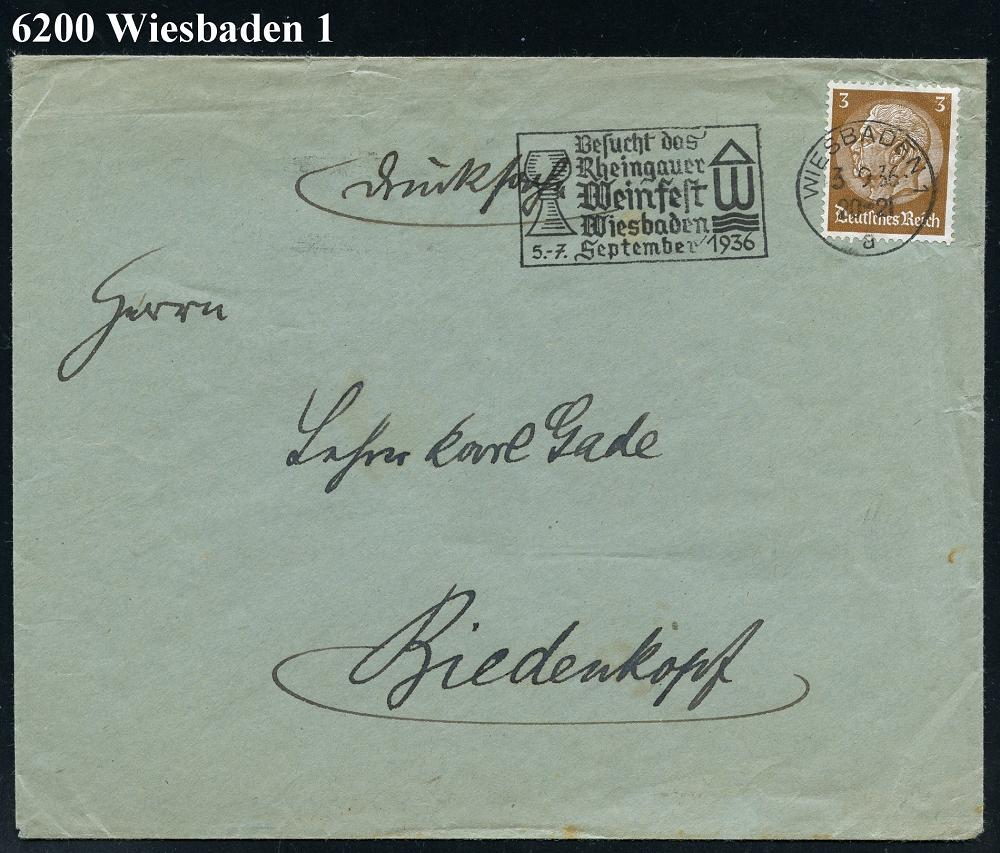 6200 Wiesbaden 1
3 3
Deutsches Reich
WIESBADEN 1
3.9.36.
20-21
g
Besucht das
Rheingauer
Weinfest
Wiesbaden
5.-7. September 1936
W
Drucksache
Herrn
Lehrer Karl Gade
Biedenkopf